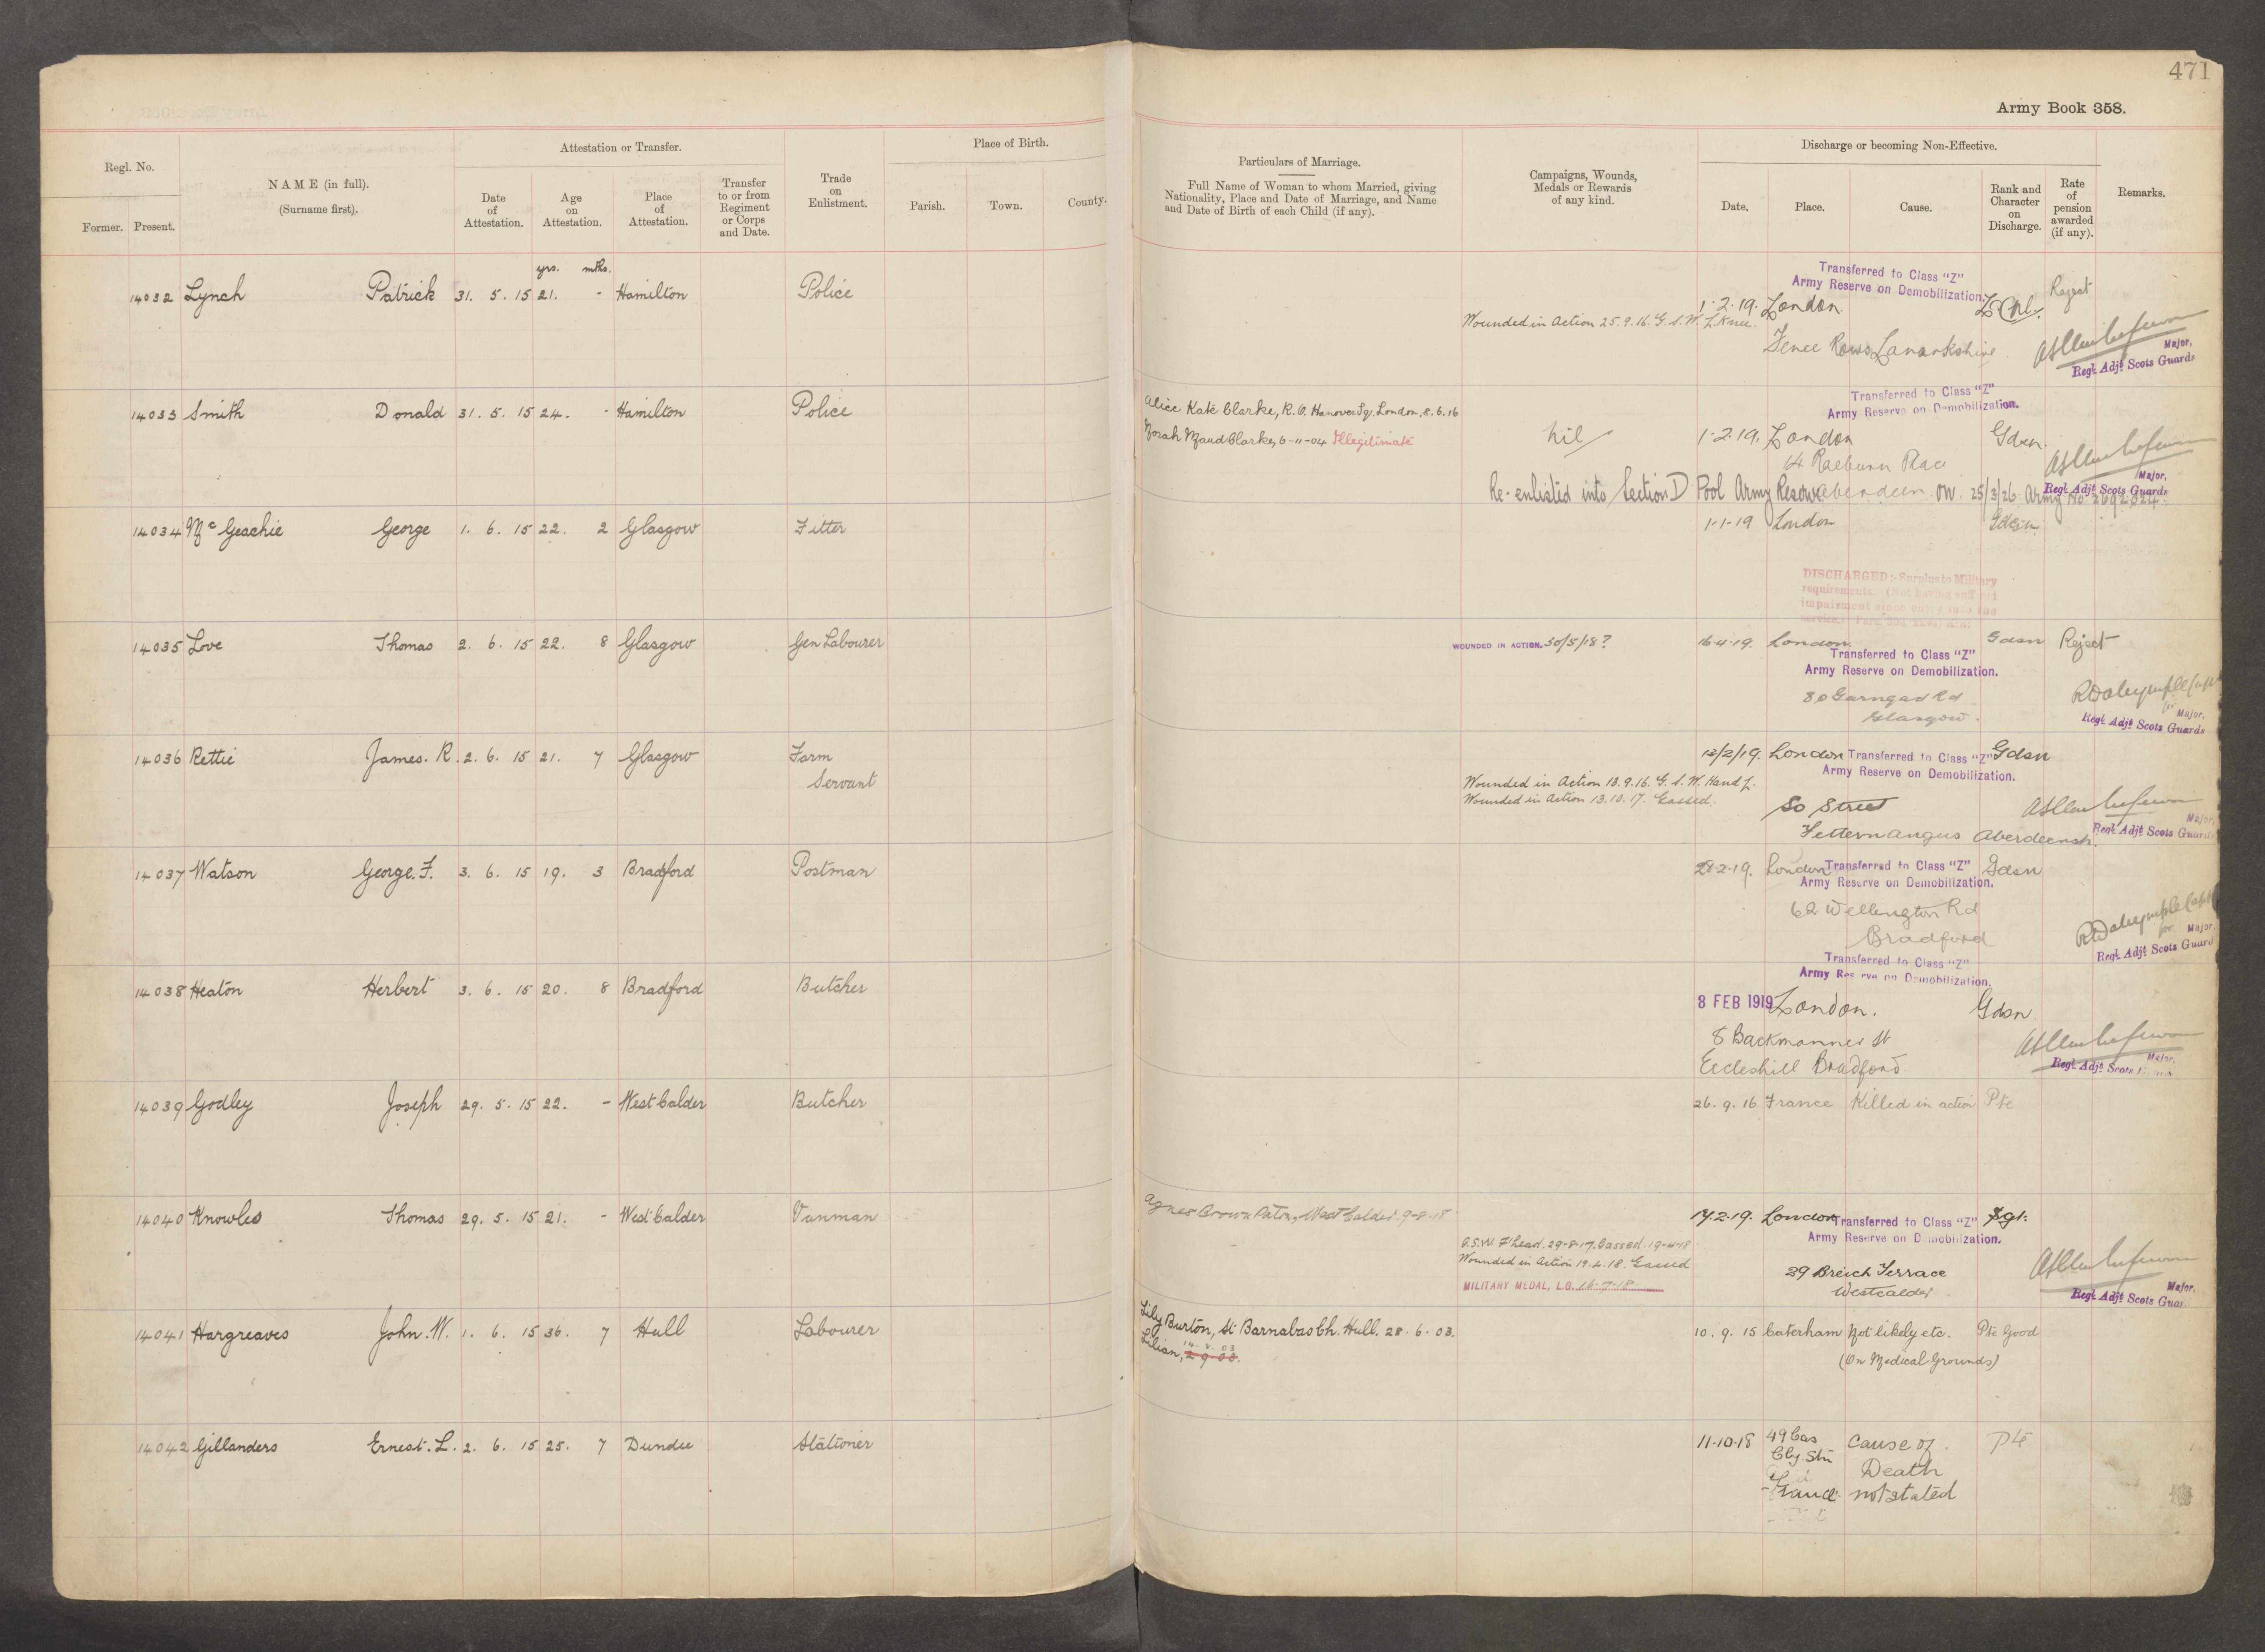 471
Army Book 358.
Regl. No.
Former. Present.
NAME (in full).
(Surname first).
Attestation or Transfer.
Date of Attestation.
Age on Attestation.
Place of Attestation.
Transfer to or from Regiment or Corps and Date.
Trade on Enlistment.
Place of Birth.
Parish. Town. County.
Particulars of Marriage.
Full Name of Woman to whom Married, giving
Nationality, Place and Date of Marriage, and Name
and Date of Birth of each Child (if any).
Campaigns, Wounds,
Medals or Rewards
of any kind.
Discharge or becoming Non-Effective.
Date. Place. Cause.
Rank and Character on Discharge.
Rate of pension awarded (if any).
Remarks.
yrs. mths.
14032 Lynch Patrick 31. 5. 15 21. - Hamilton Police
Transferred to Class "Z"
Army Reserve on Demobilization.
1.2.19. London L/Cpl. Reject
Wounded in Action 25.9.16. G.S.W. L. Knee.
Fence Rows Lanarkshire
Major,
Regl. Adjt. Scots Guards
14033 Smith Donald 31. 5. 15 24. - Hamilton Police
Alice Kate Clarke, R.O. Hanover Sq. London, 8.6.16
Norah Maud Clarke, 6-11-04 Illegitimate
Transferred to Class "Z"
Army Reserve on Demobilization.
nil 1.2.19. London Gdsn.
14 Raeburn Place
Aberdeen
Major,
Regl. Adjt. Scots Guards
Re-enlisted into Section D Pool Army Reserve on 25/3/26 Army No. 2692824.
14034 McGeachie George 1. 6. 15 22. 2 Glasgow Fitter
1-1-19 London Gdsn.
DISCHARGED:- Surplus to Military
requirements. (Not having suffered
impairment since entry into the
14035 Love Thomas 2. 6. 15 22. 8 Glasgow Gen Labourer
WOUNDED IN ACTION. 30/5/18? 16.4.19. London Gdsn Reject
Transferred to Class "Z"
Army Reserve on Demobilization.
80 Garngad Rd
Glasgow.
RDalrymple Capt
for Major,
Regl. Adjt. Scots Guards
14036 Rettie James. R. 2. 6. 15 21. 7 Glasgow Farm
Servant
London Transferred to Class "Z" Gdsn
Army Reserve on Demobilization.
Wounded in Action 13.9.16. G.S.W. Hand L.
Wounded in Action 13.10.17. Gassed.
So Street
Fetternangus Aberdeensh.
Major,
Regl. Adjt. Scots Guards
14037 Watson George. F. 3. 6. 15 19. 3 Bradford Postman
28.2.19. London Transferred to Class "Z" Gdsn
Army Reserve on Demobilization.
62 Wellington Rd
Bradford
RDalrymple Capt
for Major.
Regl. Adjt. Scots Guard
14038 Heaton Herbert 3. 6. 15 20. 8 Bradford Butcher
Transferred to Class "Z"
Army Reserve on Demobilization.
8 FEB 1919 London. Gdsn
8 Backmanner St
Eccleshill Bradford
Major,
Regl. Adjt. Scots
14039 Godley Joseph 29. 5. 15 22. - West Calder Butcher
26. 9. 16 France Killed in action Pte
14040 Knowles Thomas 29. 5. 15 21. - West Calder Vanman
Agnes Brown Paton, West Calder 9-8-18
G.S.W. F'head. 29-8-17. Gassed. 19-4-18
Wounded in Action 19.4.18. Gassed
MILITARY MEDAL, L.G. 16-7-18.
London Transferred to Class "Z" Sgt.
Army Reserve on Demobilization.
29 Breich Terrace
Westcalder
Major.
Regl. Adjt. Scots Guar
14041 Hargreaves John. W. 1. 6. 15 36. 7 Hull Labourer
Lily Burton, St Barnabas Ch. Hull. 28. 6. 03.
Lilian, 2 9 03.
10. 9. 15 Caterham Not likely etc. Pte Good
(On Medical Grounds)
14042 Gillanders Ernest. L. 2. 6. 15 25. 7 Dundee Stationer
11-10-18 49 Cas Cause of Pte
Clg. Stn Death
France not stated